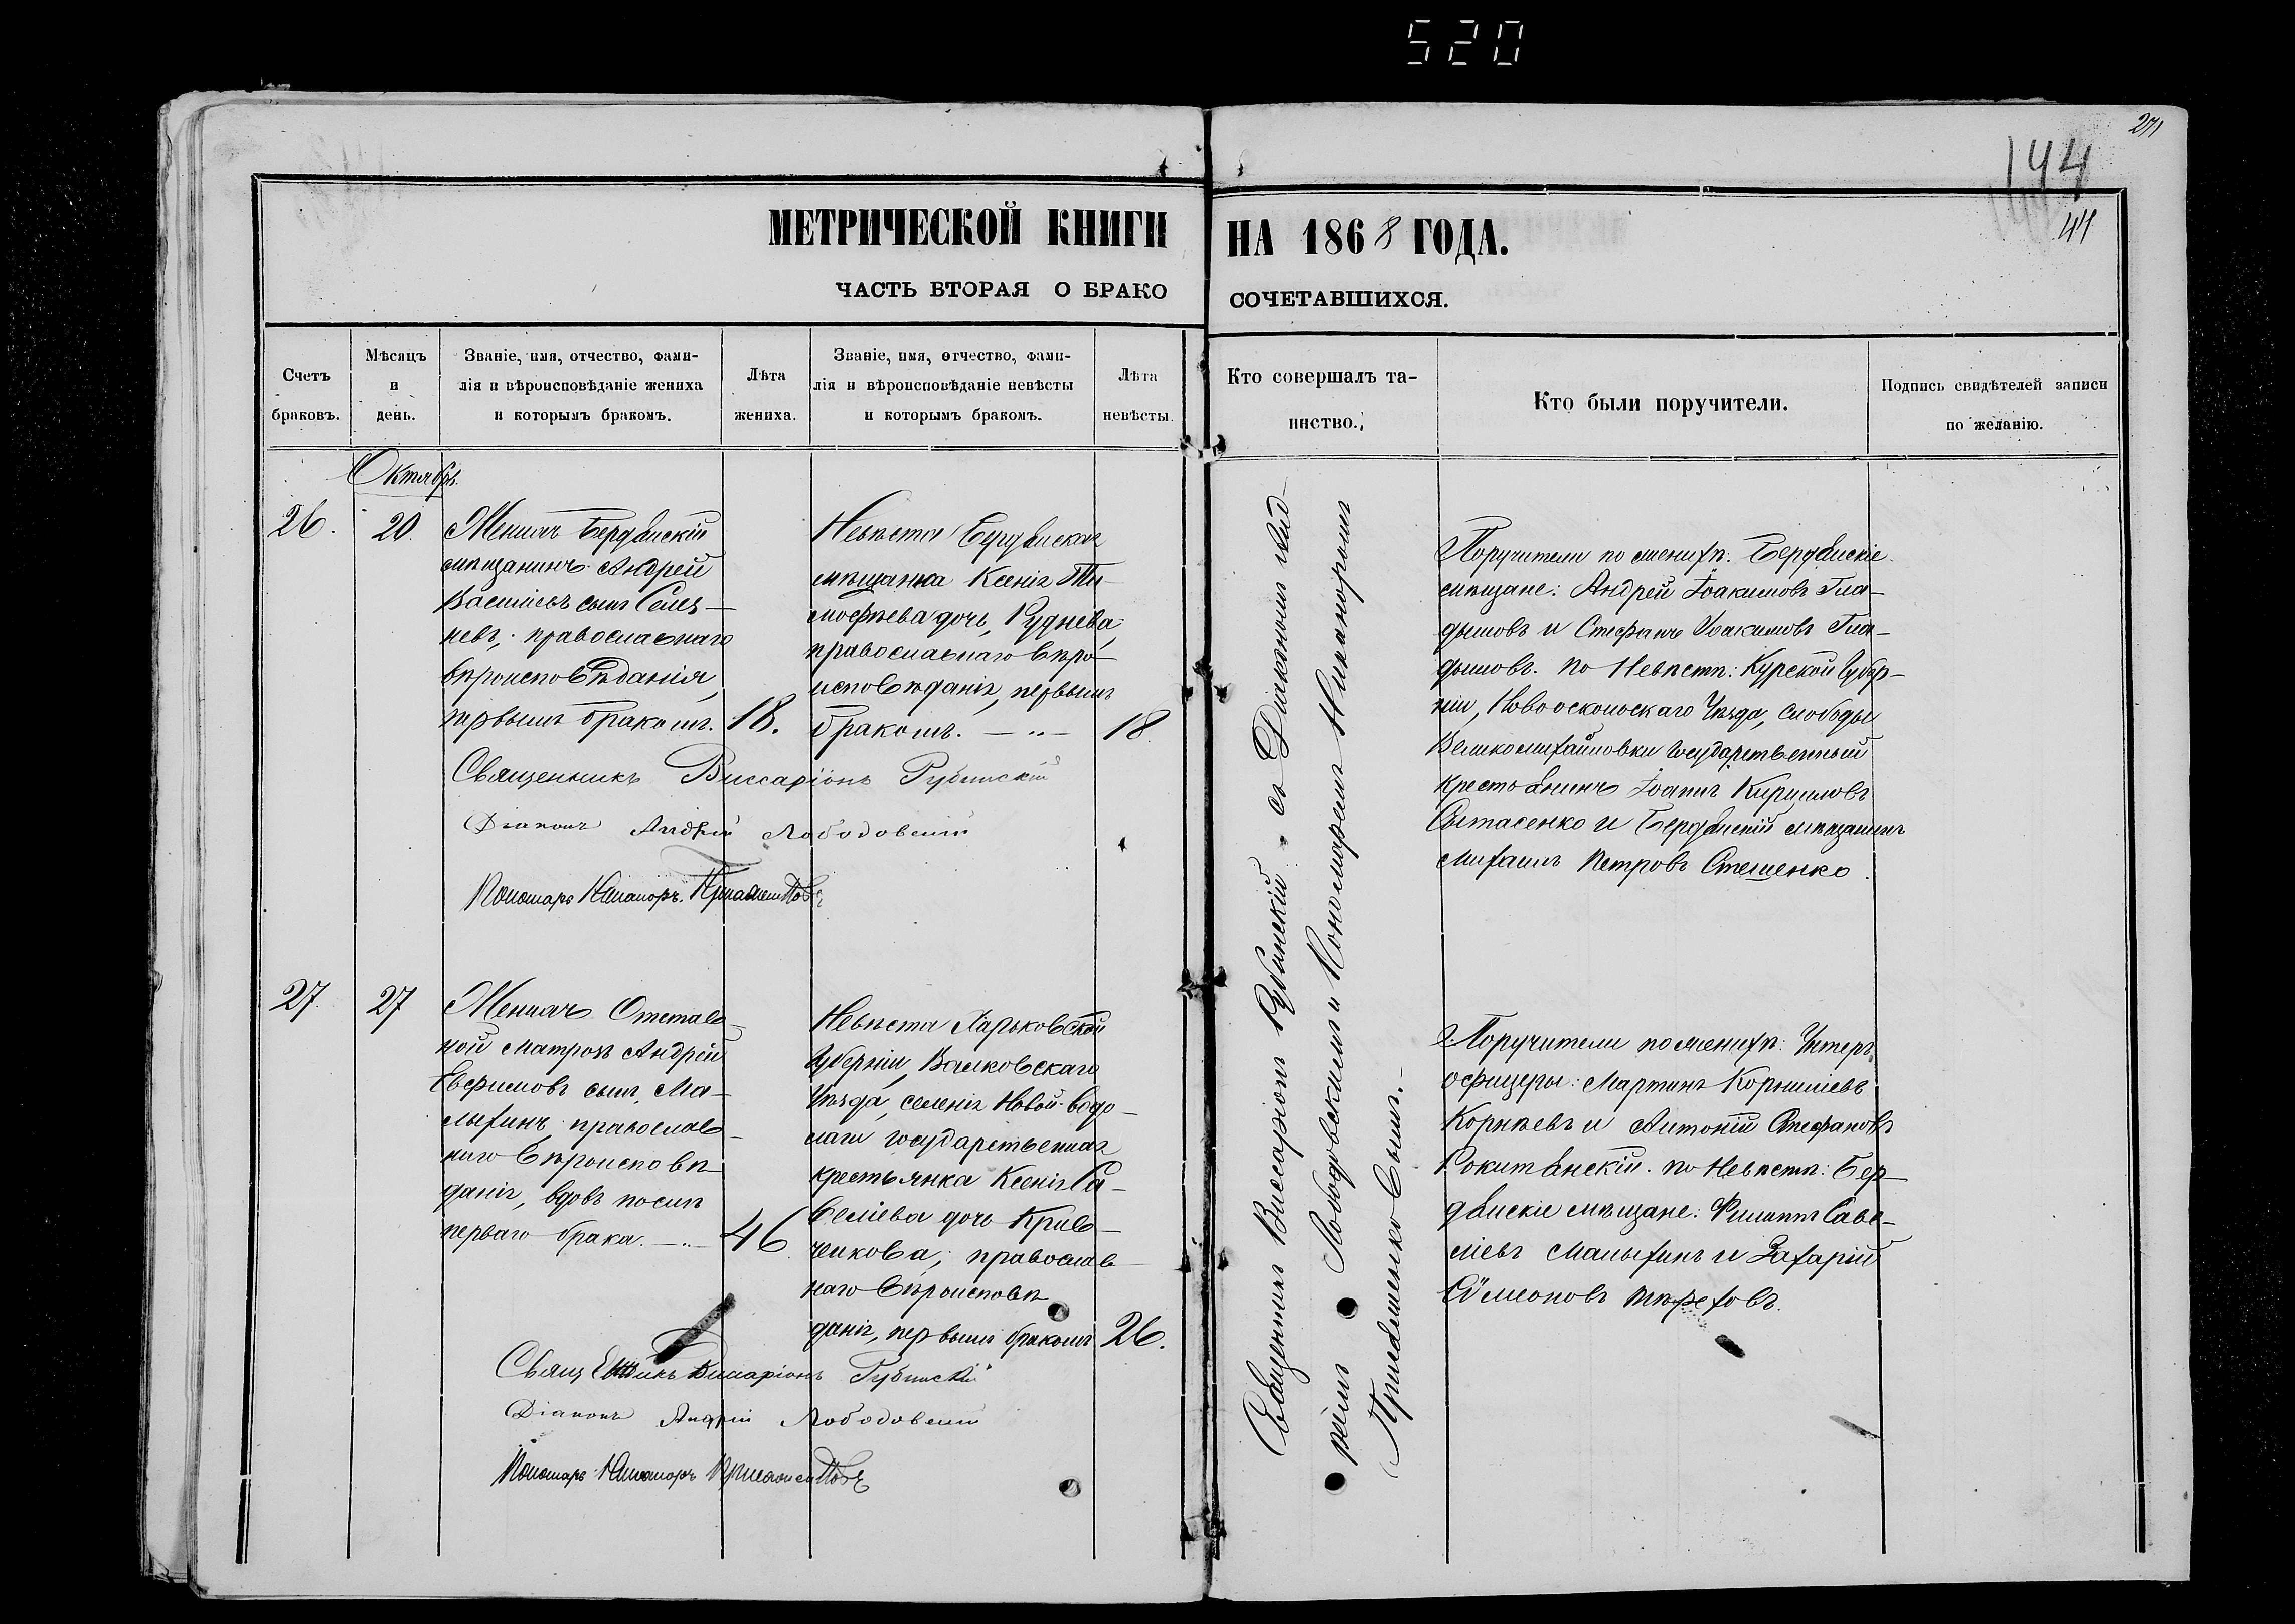 520
271
144
44
МЕТРИЧЕСКОЙ КНИГИ НА 1868 ГОДА.
ЧАСТЬ ВТОРАЯ О БРАКОСОЧЕТАВШИХСЯ.
Счетъ
браковъ.
Мѣсяцъ
и
день.
Званіе, имя, отчество, фами-
лія и вѣроисповѣданіе жениха
и которымъ бракомъ.
Лѣта
жениха.
Званіе, имя, отчество, фами-
лія и вѣроисповѣданіе невѣсты
и которымъ бракомъ.
Лѣта
невѣсты.
Кто совершалъ та-
инство.
Кто были поручители.
Подпись свидѣтелей записи
по желанію.
Октябрь.
26.
20.
Женихъ Бердянскій
мѣщанинъ Андрей
Васильевъ сынъ Селез-
невъ, православнаго
вѣроисповѣданія,
первымъ бракомъ.
18.
Невѣста Бердянская
мѣщанка Ксенія Ти-
мофѣева дочь, Руднева,
православнаго вѣро-
исповѣданія, первымъ
бракомъ.
18.
Священникъ Виссаріонъ Рубинскій
Діаконъ Андрей Лободовскій
Пономарь Никаноръ
Поручители по женихѣ: Бердянскіе
мѣщане: Андрей Іоакимовъ Гла-
дышовъ и Стефанъ Іоакимовъ Гла-
дышовъ. По Невѣстѣ: Курской губер-
ніи, Новооскольскаго Уѣзда, Слободы
Великомихайловки Государственный
крестьянинъ Іоаннъ Кирилловъ
Сытасенко и Бердянскій мѣщанинъ
Михаилъ Петровъ Стешенко.
27.
27
Женихъ Отстав-
ной Матросъ Андрей
Евфимовъ сынъ, Ма-
лыхинъ, православ-
наго вѣроисповѣ-
данія, вдовъ послѣ
перваго брака.
46.
Невѣста Харьковской
Губерніи, Валковскаго
Уѣзда, селенія Новой-Водо-
лаги Государственная
крестьянка Ксенія Са-
веліева дочь Крив-
ченкова, православ-
наго вѣроисповѣ
данія, первымъ бракомъ
26.
Священникъ Виссаріонъ Рубинскій
Діаконъ Андрей Лободовскій
Пономарь Никаноръ
Поручители по женихѣ: Унтеръ
офицеры: Мартинъ Корниліевъ
Корнѣевъ и Антоній Стефановъ
Рокитянскій. По Невѣстѣ: Бер-
дянскіе мѣщане: Филиппъ Саве-
ліевъ Малыхинъ и Захарій
Симеоновъ Терехов.
Священникъ Виссаріонъ Рубинскій съ Діакономъ Анд-
реемъ Лободовскимъ и Пономаремъ Никаноромъ